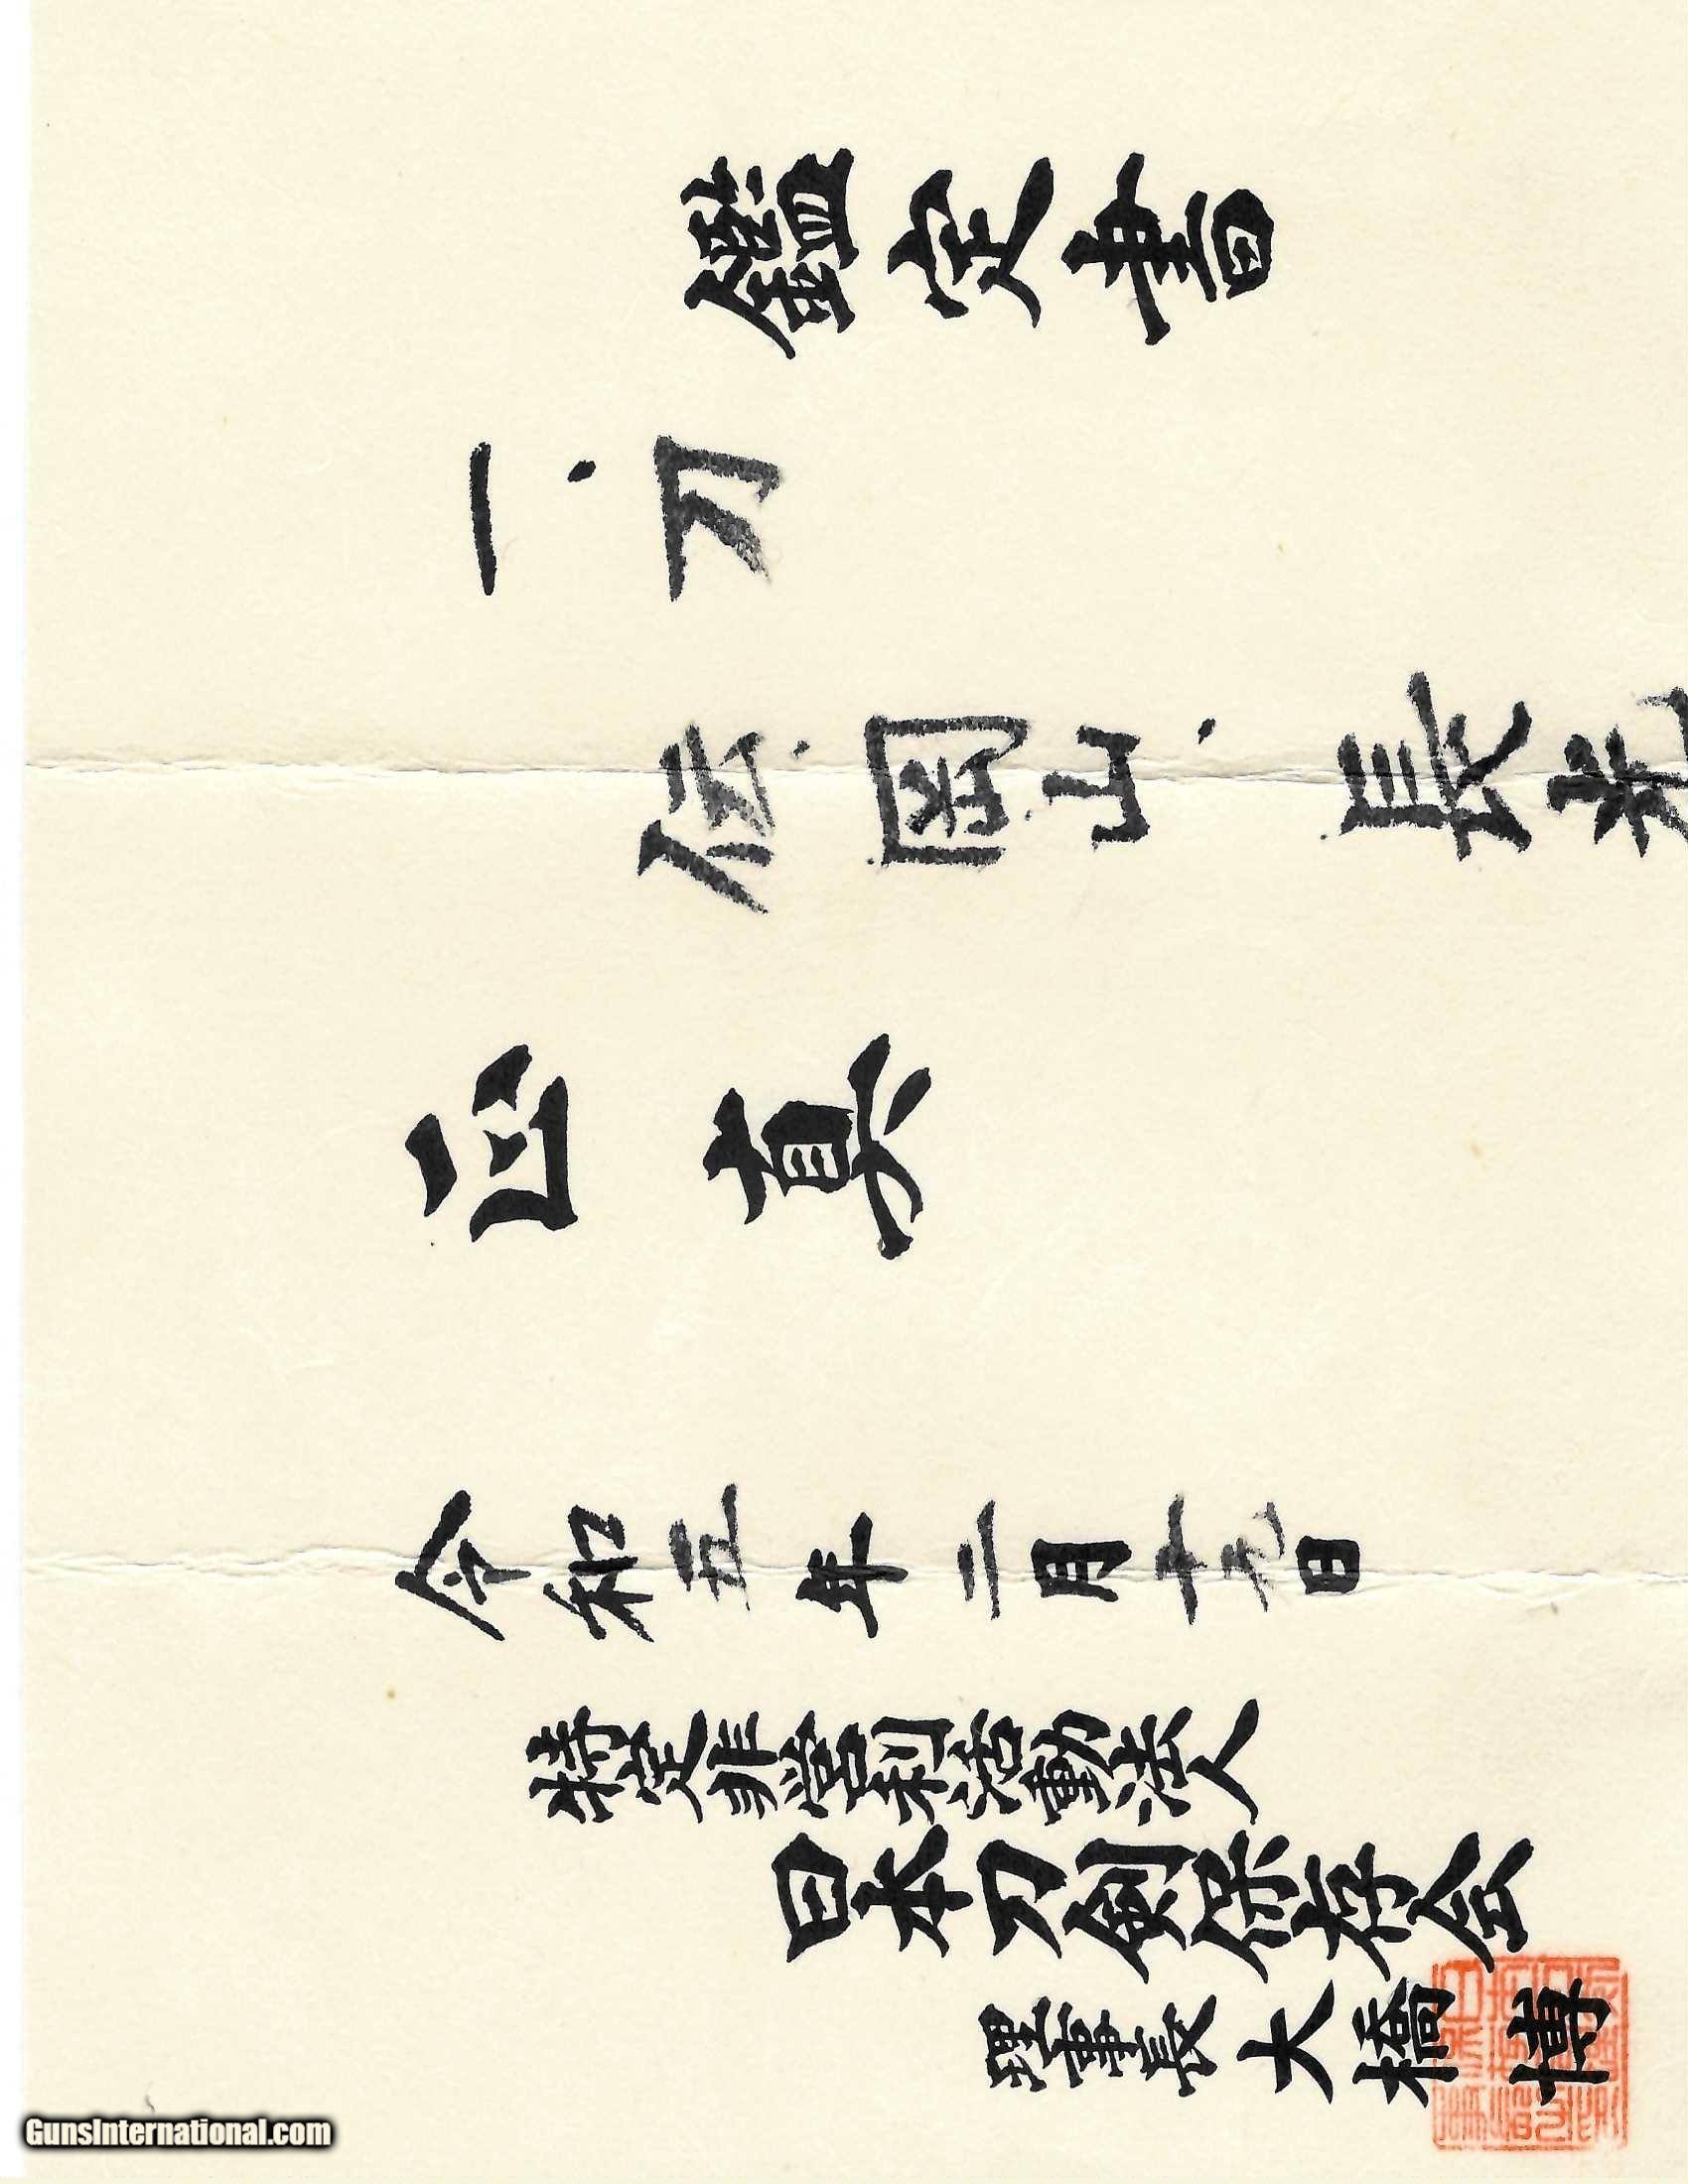 鑑定書
一、刀
伝、岡山、長光
正真
令和五年二月十九日
特定非営利活動法人
日本刀剣保存会
理事長 大橋博
GunsInternational.com